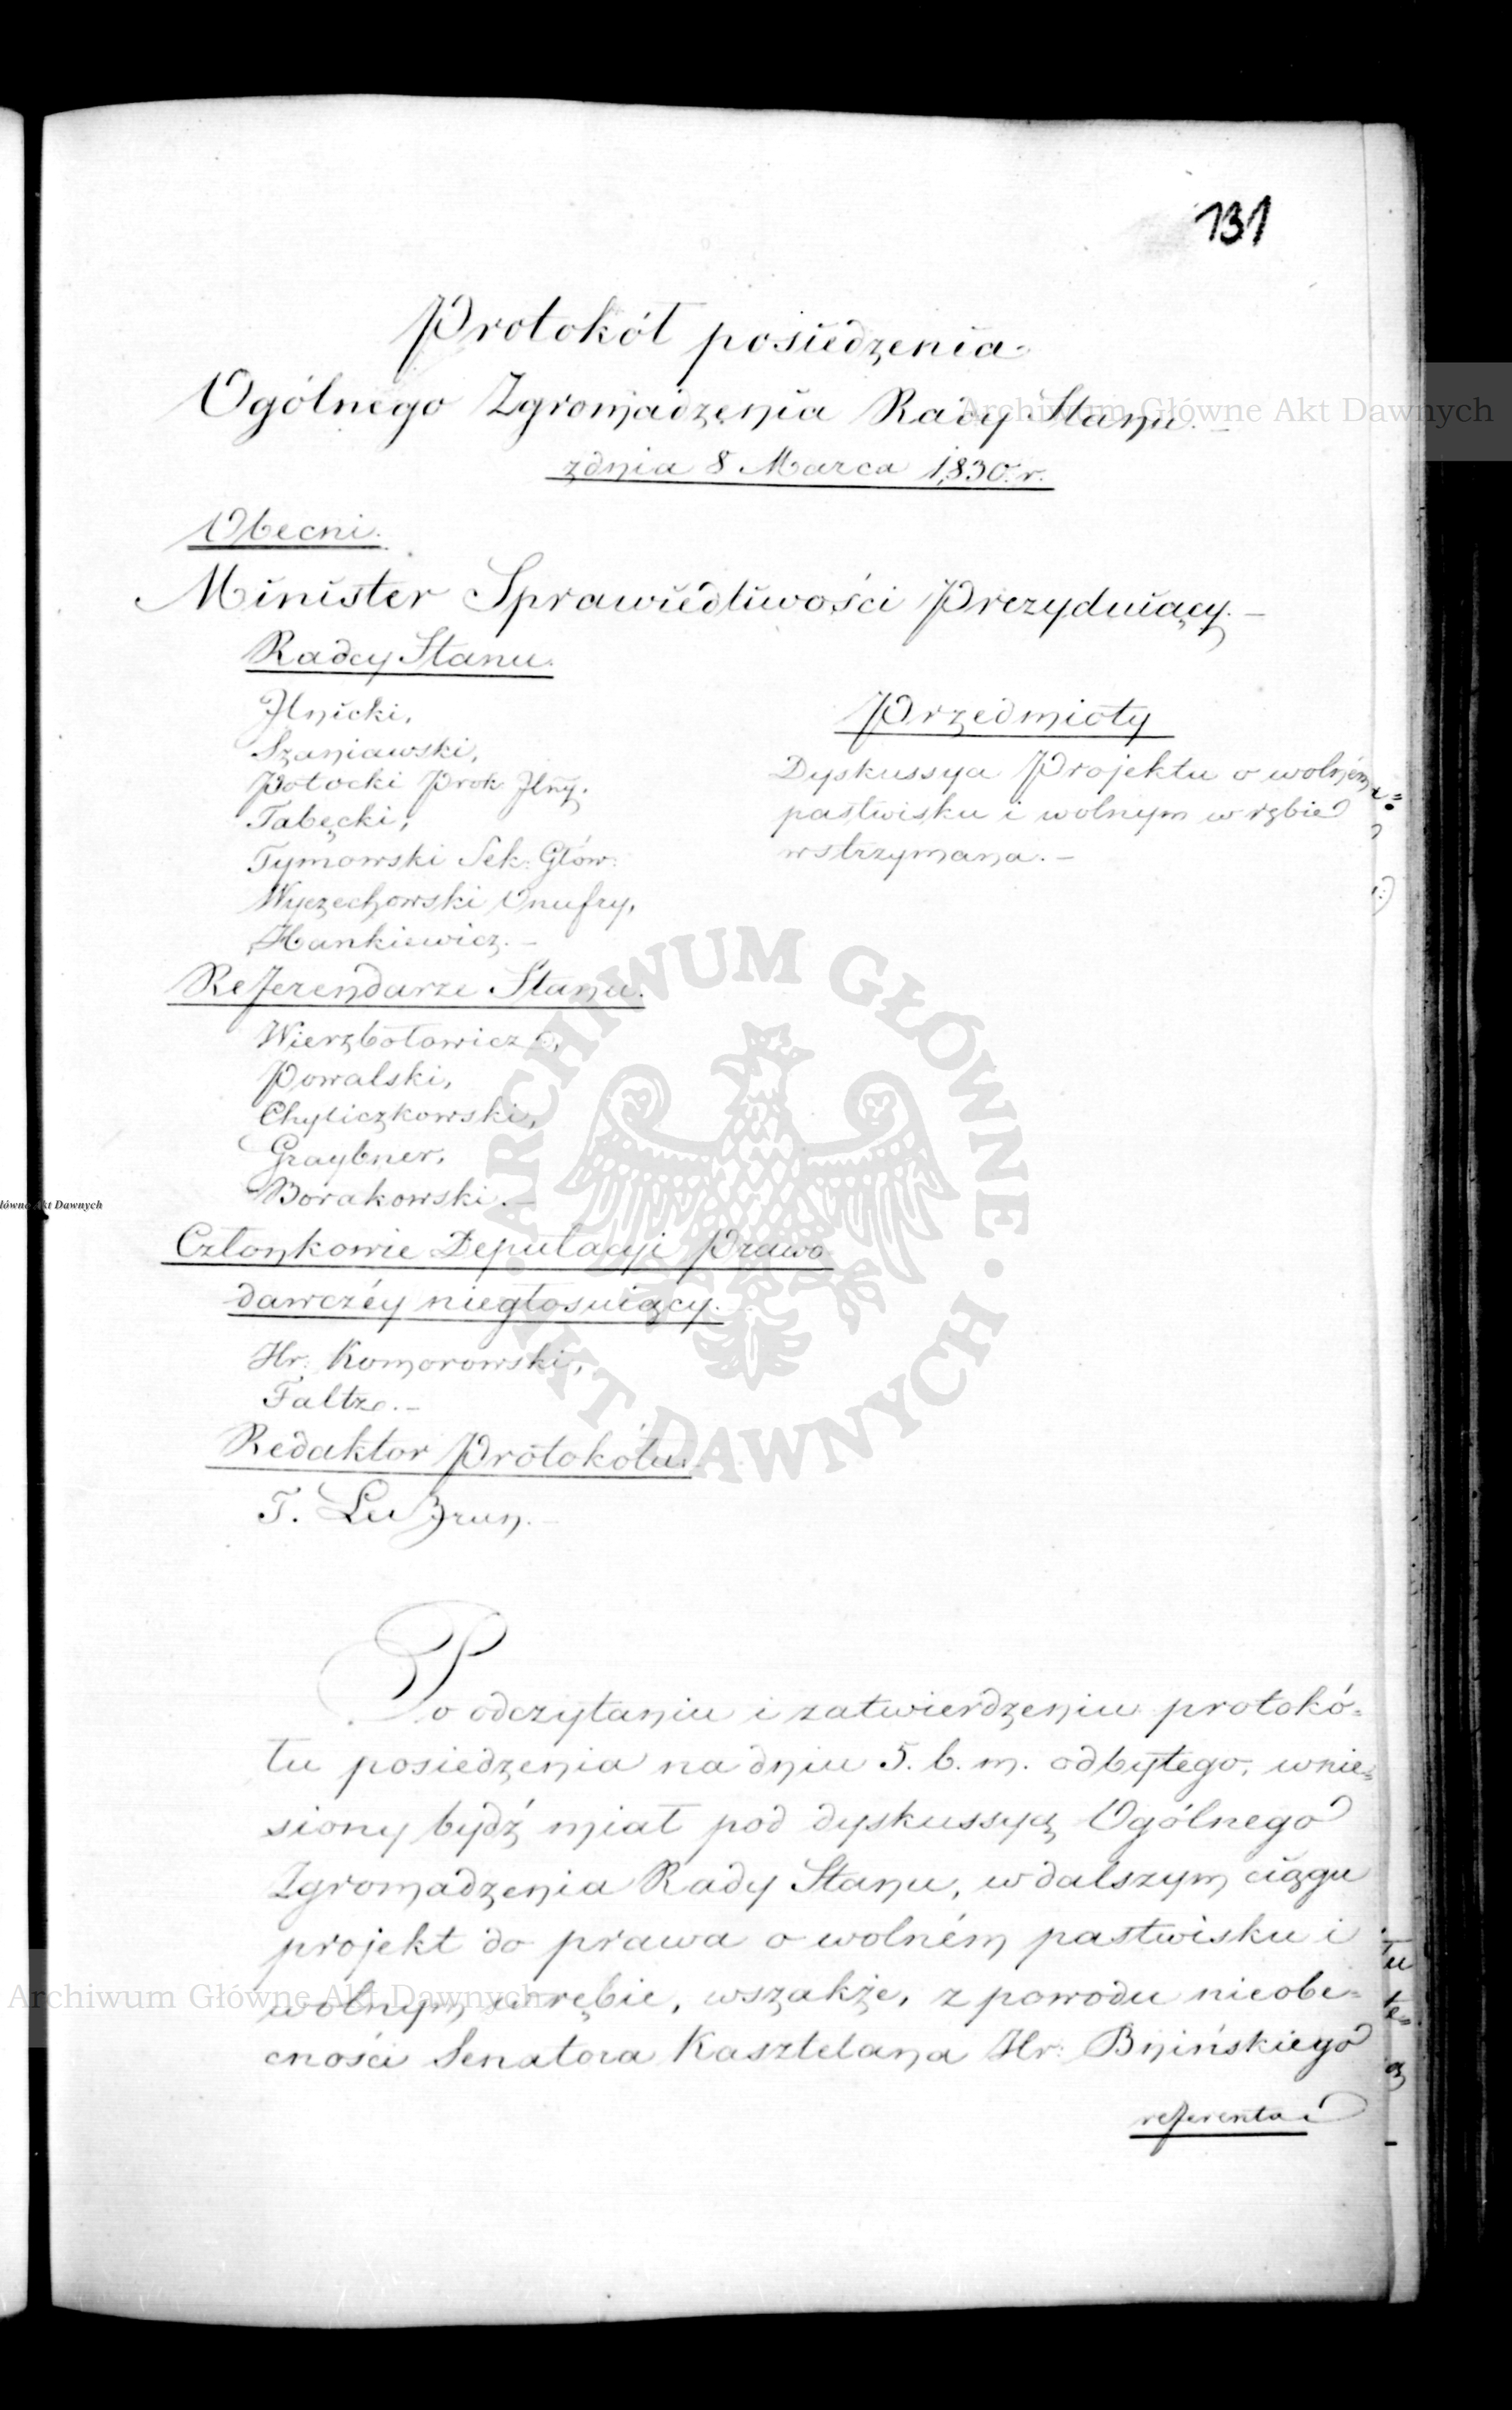 131
Protokół posiedzenia
Ogólnego Zgromadzenia Rady Stanu. –
z dnia 8 Marca 1,830. r.
Obecni.
Minister Sprawiedliwości Prezyduiący. –
Radcy Stanu.
Ilnicki,
Szaniawski,
Potocki Prok. Jlny.
Tabęcki,
Tymowski Sek: Głów:
Wyczechowski Onufry,
Hankiewicz. –
Przedmioty
Dyskussya Projektu o wolném
pastwisku i wolnym wrębie
wstrzymana. –
Referendarze Stanu.
Wierzbołowicz,
Powalski,
Chyliczkowski,
Graybner,
Borakowski. –
Członkowie Deputacyi Prawo
dawczéy niegłosuiący.
Hr: Komorowski,
Faltz. –
Redaktor Protokółu.
T. Le Brun. –
Po odczytaniu i zatwierdzeniu protokó=
łu posiedzenia na dniu 5. b. m. odbytego, wnie=
siony bydź miał pod dyskussyą Ogólnego
Zgromadzenia Rady Stanu, w dalszym ciągu
projekt do prawa o wolném pastwisku i
wolnym wrębie, wszakże, z powodu nieobe=
cności Senatora Kasztelana Hr: Bnińskiego
referenta
Archiwum Główne Akt Dawnych
Archiwum Główne Akt Dawnych
główne Akt Dawnych
ARCHIWUM GŁÓWNE · AKT DAWNYCH ·